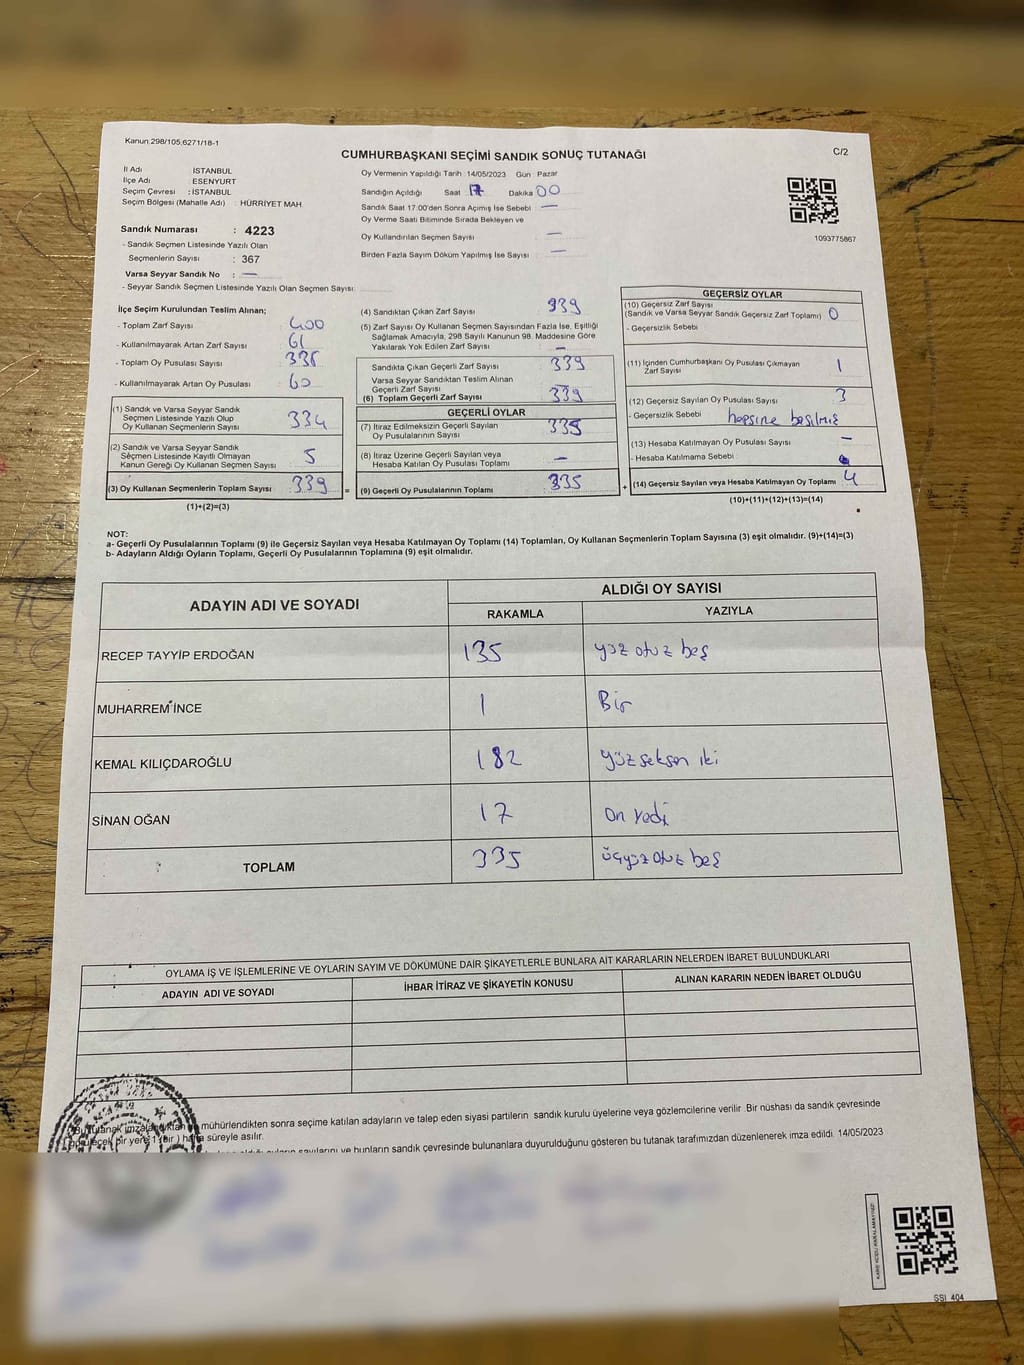 Kanun:298/105,6271/18-1
CUMHURBAŞKANI SEÇİMİ SANDIK SONUÇ TUTANAĞI
C/2
İl Adı İSTANBUL
İlçe Adı : ESENYURT
Seçim Çevresi : İSTANBUL
Seçim Bölgesi (Mahalle Adı) : HÜRRİYET MAH.
Sandık Numarası : 4223
- Sandık Seçmen Listesinde Yazılı Olan
Seçmenlerin Sayısı : 367
Varsa Seyyar Sandık No : —
- Seyyar Sandık Seçmen Listesinde Yazılı Olan Seçmen Sayısı:
Oy Vermenin Yapıldığı Tarih :14/05/2023 Gün : Pazar
Sandığın Açıldığı Saat 17 Dakika 00
Sandık Saat 17:00'den Sonra Açımış İse Sebebi —
Oy Verme Saati Bitiminde Sırada Bekleyen ve
Oy Kullandırılan Seçmen Sayısı —
Birden Fazla Sayım Döküm Yapılmış İse Sayısı —
1093775867
İlçe Seçim Kurulundan Teslim Alınan;
- Toplam Zarf Sayısı 400
- Kullanılmayarak Artan Zarf Sayısı 61
- Toplam Oy Pusulası Sayısı
- Kullanılmayarak Artan Oy Pusulası 60
(1) Sandık ve Varsa Seyyar Sandık
Seçmen Listesinde Yazılı Olup
Oy Kullanan Seçmenlerin Sayısı 334
(2) Sandık ve Varsa Seyyar Sandık
Seçmen Listesinde Kayıtlı Olmayan
Kanun Gereği Oy Kullanan Seçmen Sayısı 5
(3) Oy Kullanan Seçmenlerin Toplam Sayısı 339 =
(1)+(2)=(3)
(4) Sandıktan Çıkan Zarf Sayısı 939
(5) Zarf Sayısı Oy Kullanan Seçmen Sayısından Fazla İse, Eşitliği
Sağlamak Amacıyla, 298 Sayılı Kanunun 98. Maddesine Göre
Yakılarak Yok Edilen Zarf Sayısı —
Sandıkta Çıkan Geçerli Zarf Sayısı 339
Varsa Seyyar Sandıktan Teslim Alınan
Geçerli Zarf Sayısı —
(6) Toplam Geçerli Zarf Sayısı 339
GEÇERLİ OYLAR
(7) İtiraz Edilmeksizin Geçerli Sayılan
Oy Pusulalarının Sayısı 335
(8) İtiraz Üzerine Geçerli Sayılan veya
Hesaba Katılan Oy Pusulası Toplamı —
(9) Geçerli Oy Pusulalarının Toplamı 335 +
GEÇERSİZ OYLAR
(10) Geçersiz Zarf Sayısı
(Sandık ve Varsa Seyyar Sandık Geçersiz Zarf Toplamı) 0
- Geçersizlik Sebebi
(11) İçinden Cumhurbaşkanı Oy Pusulası Çıkmayan
Zarf Sayısı 1
(12) Geçersiz Sayılan Oy Pusulası Sayısı 3
- Geçersizlik Sebebi hepsine basılmış
(13) Hesaba Katılmayan Oy Pusulası Sayısı —
- Hesaba Katılmama Sebebi
(14) Geçersiz Sayılan veya Hesaba Katılmayan Oy Toplamı 4
(10)+(11)+(12)+(13)=(14)
NOT:
a- Geçerli Oy Pusulalarının Toplamı (9) ile Geçersiz Sayılan veya Hesaba Katılmayan Oy Toplamı (14) Toplamları, Oy Kullanan Seçmenlerin Toplam Sayısına (3) eşit olmalıdır. (9)+(14)=(3)
b- Adayların Aldığı Oyların Toplamı, Geçerli Oy Pusulalarının Toplamına (9) eşit olmalıdır.
ADAYIN ADI VE SOYADI
ALDIĞI OY SAYISI
RAKAMLA YAZIYLA
RECEP TAYYİP ERDOĞAN 135 yüz otuz beş
MUHARREM İNCE 1 Bir
KEMAL KILIÇDAROĞLU 182 yüz seksen iki
SİNAN OĞAN 17 On yedi
TOPLAM 335 üçyüz otuz beş
OYLAMA İŞ VE İŞLEMLERİNE VE OYLARIN SAYIM VE DÖKÜMÜNE DAİR ŞİKAYETLERLE BUNLARA AİT KARARLARIN NELERDEN İBARET BULUNDUKLARI
ADAYIN ADI VE SOYADI İHBAR İTİRAZ VE ŞİKAYETİN KONUSU ALINAN KARARIN NEDEN İBARET OLDUĞU
Bu tutanak imzalandıktan mühürlendikten sonra seçime katılan adayların ve talep eden siyasi partilerin sandık kurulu üyelerine veya gözlemcilerine verilir. Bir nüshası da sandık çevresinde
bir yere 1 (bir) hafta süreyle asılır.
sayılarını ve bunların sandık çevresinde bulunanlara duyurulduğunu gösteren bu tutanak tarafımızdan düzenlenerek imza edildi. 14/05/2023
SSI_404